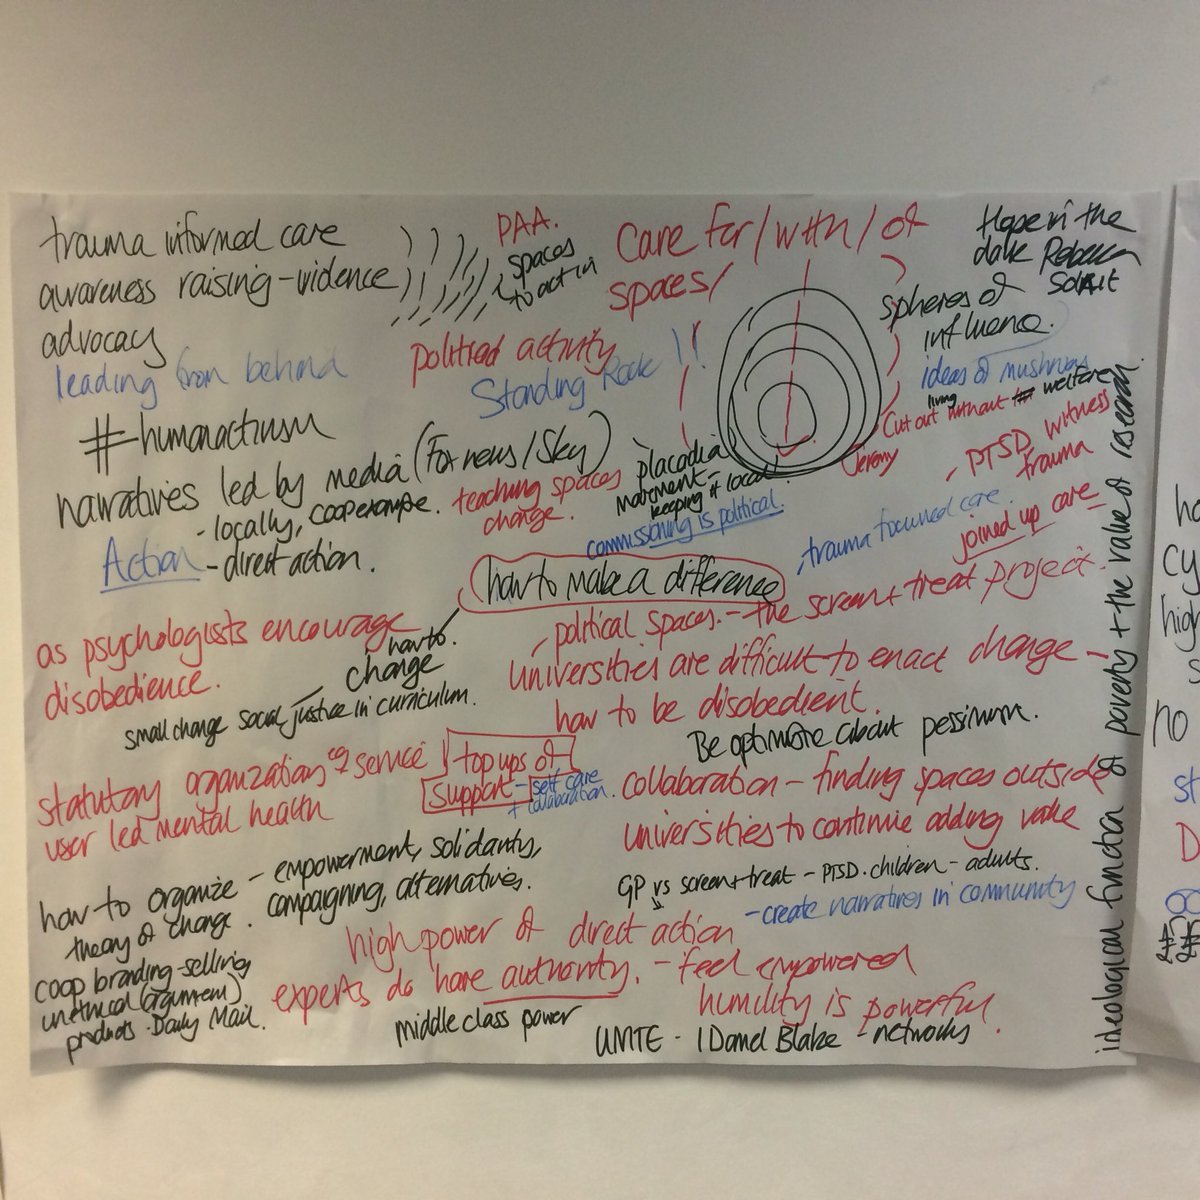 trauma informed care
awareness raising - vidence
advocacy
leading from behind
PAA.
spaces
to act in
political activity
Standing Rock !!
care for / with / of
spaces /
Hope in the
dark Rebecca
Solnit
spheres of
influence.
ideas of
living
cut out without welfare
Jeremy
PTSD witness
trauma
#humanactivism
narratives led by media (Fox news / Sky)
- locally, coop example.
teaching spaces
change.
movement -
keeping it local
commissioning is political.
Action - direct action.
trauma focused care.
joined up care
how to make a difference
political spaces. - the screen + treat project.
as psychologists encourage
disobedience.
how to.
change
small change social justice in curriculum.
universities are difficult to enact change -
how to be disobedient.
Be optimistic about pessimism.
statutory organizations eg service
user led mental health
top ups of
support - self care
+ collaboration.
collaboration - finding spaces outside
universities to continue adding value
GP vs screen + treat - PTSD. children - adults.
- create narratives in community
how to organize - empowerment, solidarity,
theory of change. campaigning, alternatives.
high power of direct action
coop branding - selling
unethical (argument)
products. Daily Mail.
experts do have authority. - feel empowered
humility is powerful.
middle class power
UNITE - I Daniel Blake - networks
ideological function of poverty + the value of research
no
D